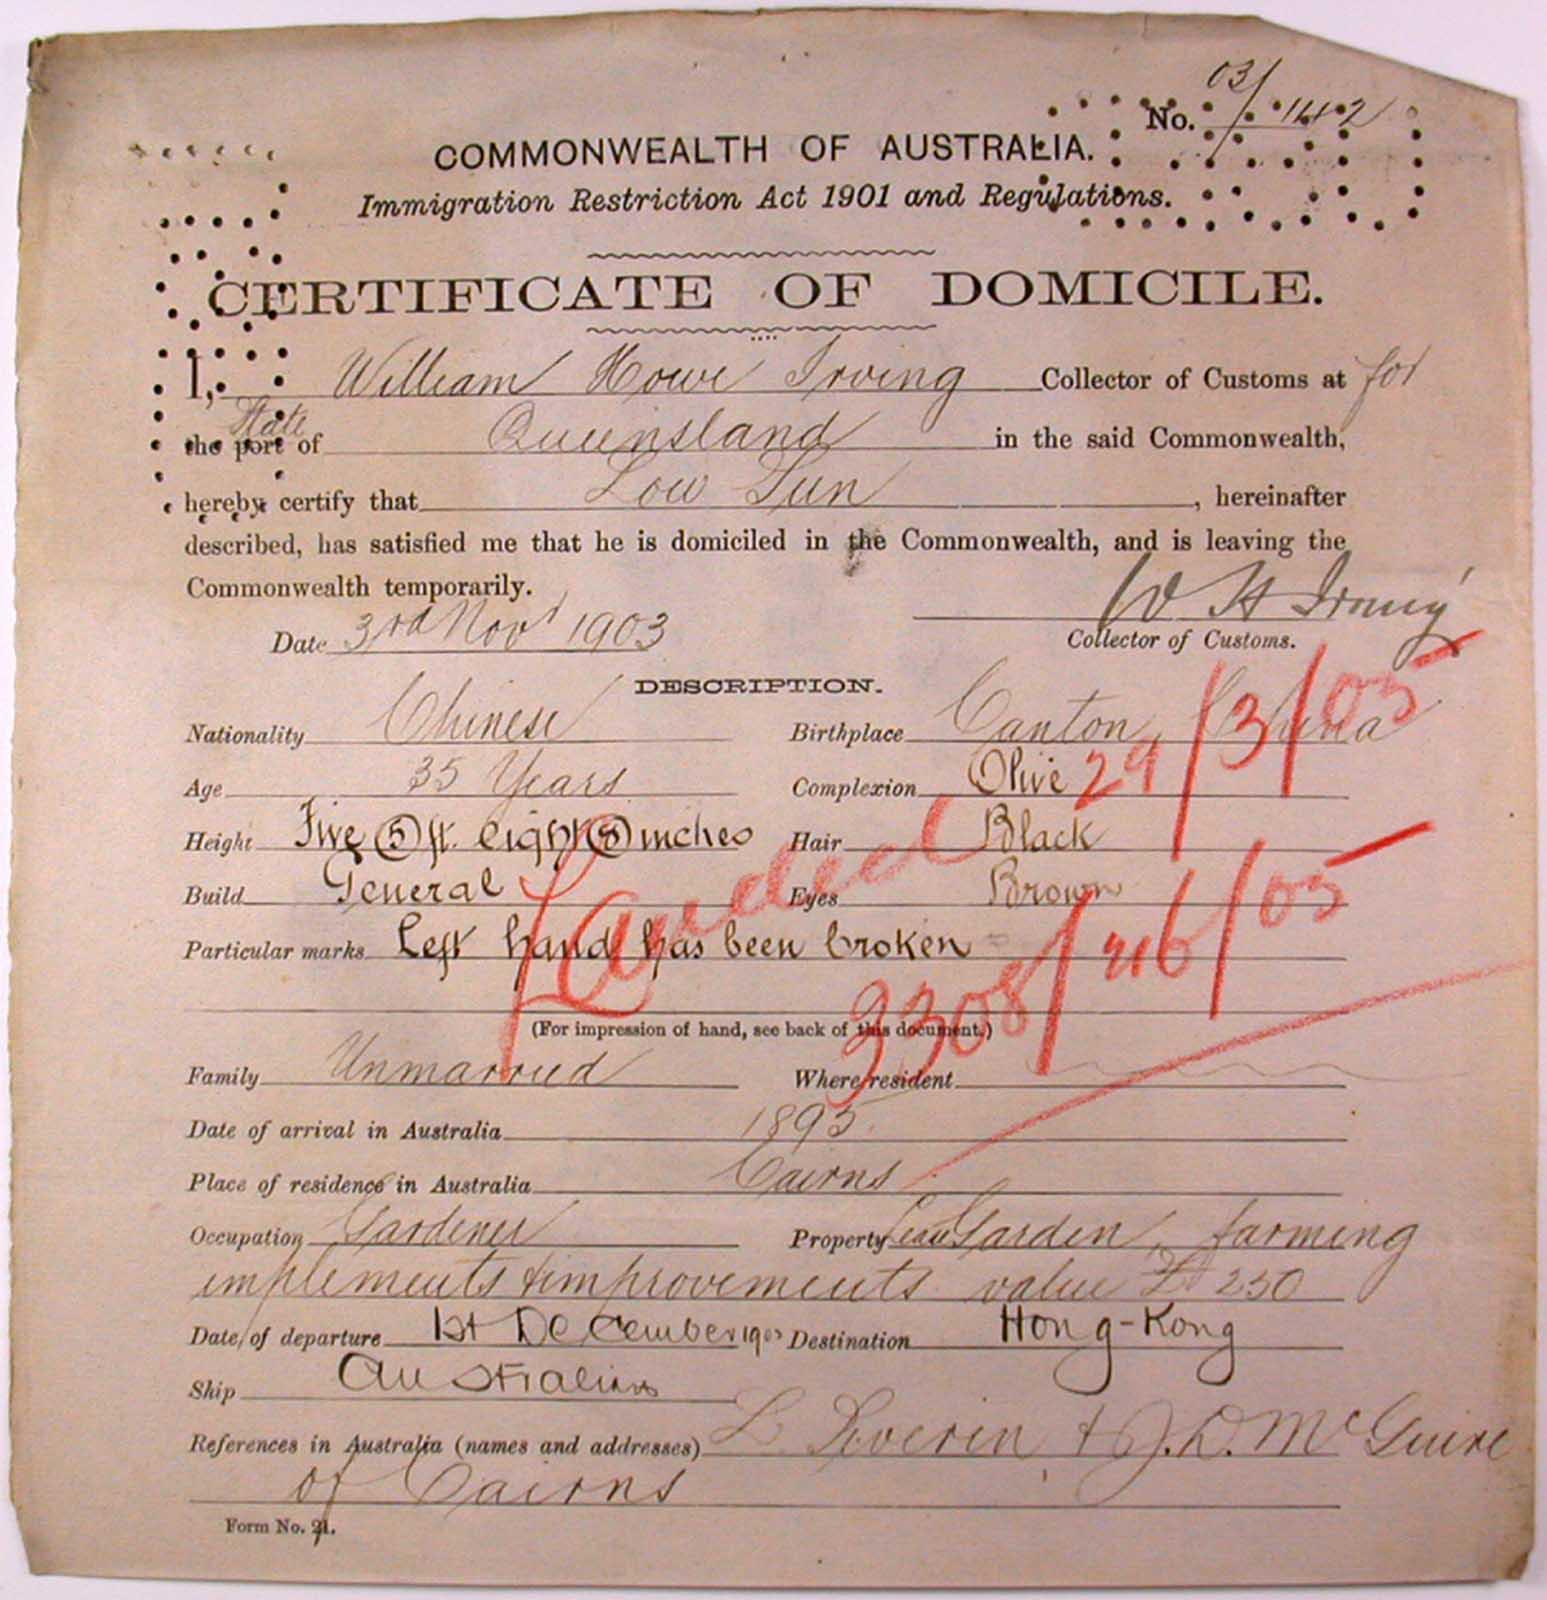 No. 03/142
COMMONWEALTH OF AUSTRALIA.
Immigration Restriction Act 1901 and Regulations.
CERTIFICATE OF DOMICILE.
I, William Howe Irving Collector of Customs at for
State
the port of Queensland in the said Commonwealth,
hereby certify that Low Sun, hereinafter
described, has satisfied me that he is domiciled in the Commonwealth, and is leaving the
Commonwealth temporarily.
W H Irving
Date 3rd Novr 1903 Collector of Customs.
DESCRIPTION.
Nationality Chinese Birthplace Canton, China
Age 35 Years Complexion Olive
29/3/05
Height Five (5) ft. eight (8) inches Hair Black
Build General Eyes Brown
Landed
Particular marks Left hand has been broken
3308/05
(For impression of hand, see back of this document.)
Family Unmarried Where resident
Date of arrival in Australia 1895.
Place of residence in Australia Cairns
Occupation Gardener Property Garden, farming
implements & improvements value £ 250
Date of departure 1st December 1903 Destination Hong-Kong
Ship Australian
References in Australia (names and addresses) L Severin & J. D. McGuire
of Cairns
Form No. 21.